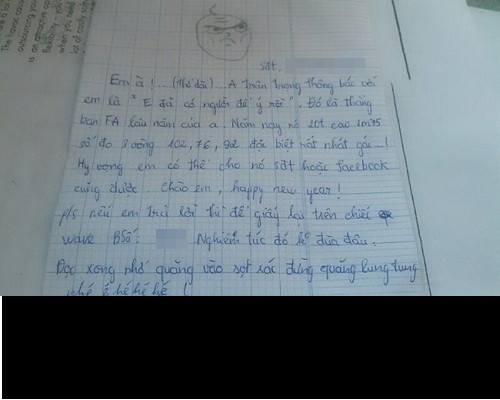 The Tarot
outcoming you
is an
flexibility
when you need
lot of
sđt.
Em à ! ... (thở dài) ... A trân trọng thông báo với
em là " E đã có người để ý rồi". Đó là thằng
bạn FA lâu năm của a. Năm nay nó 20t cao 1m75
số đo 3 vòng 102, 76, 92 đặc biệt rất nhát gái...!
Hy vọng em có thể cho nó sđt hoặc facebook
cũng được. Chào em, happy new year!
p/s nếu em trả lời thì để giấy lại trên chiếc xe
wave BSố: Nghiêm túc đó k đùa đâu.
Đọc xong nhớ quăng vào sọt rác đừng quăng lung tung
nhé é hé hé hé !